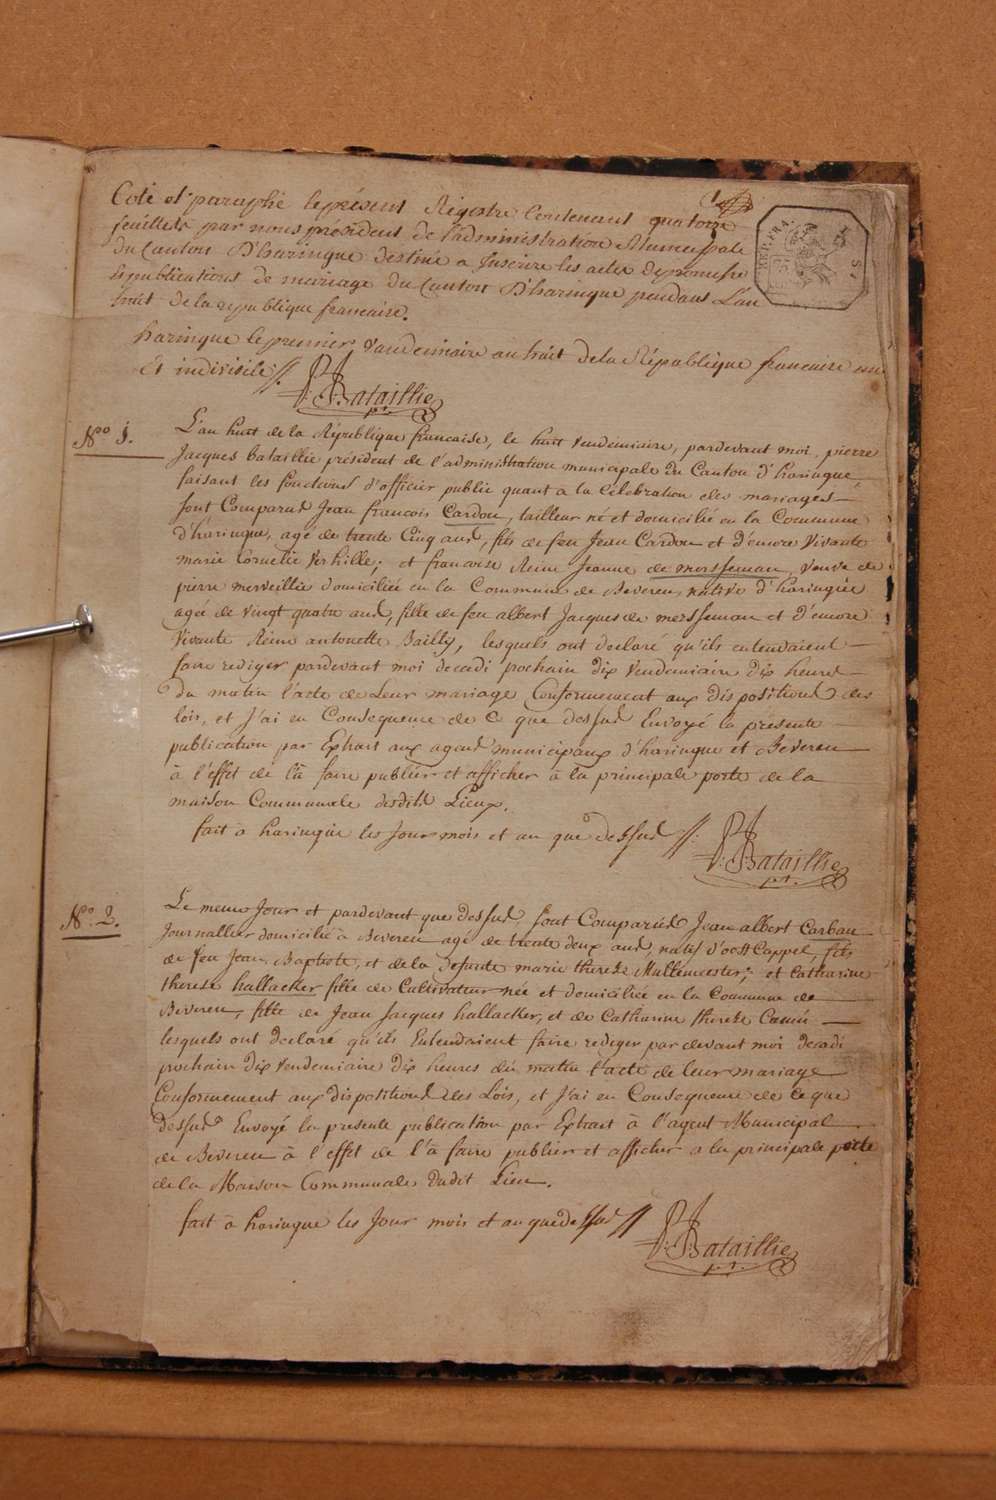 Coté et paraphé le présent Régistre Contenant quatorze
feuillets par nous président de l'administration Municipale
du Canton D'haringue destiné a Inscrire les actes de promesse
de publications de mariage du Canton D'haringue pendant L'an
huit de la republique francaise.
haringue le premier Vandemiaire an huit de la République francaise une
Et indivisible //.
P: J: Bataillie
pt.
REP. FRA.
Nºº 1.
L'an huit de la République francaise, le huit Vendemiaire, pardevant moi, pierre
Jacques bataillie président de l'administration municipale du Canton d'haringue,
faisant les fonctions d'officier public quant à la Célébration des mariages
sont Comparus Jean francois Cardou, tailleur né et domicilié en la Commune
d'haringue, agé de trente Cinq ans, fils de feu Jean Cardou et d'encore Vivante
marie Cornelie Verhille; et francoise Reine Jeanne de mersseman, veuve de
pierre merveillie domiciliée en la Commune de Beveren, native d'haringue
agée de vingt quatre ans, fille de feu albert Jacques de mersseman et d'encore
Vivante Reine antoinette Bailly, lesquels ont declaré qu'ils entendaient
faire rediger pardevant moi decadi prochain dix Vendemiaire dix heures
du matin l'acte de Leur mariage Conformement aux dispositions des
lois, et J'ai en Consequence de ce que dessus Envoyé la présente
publication par Extrait aux agens municipaux d'haringue et Beveren
à l'effet de l'à faire publier et afficher à la principale porte de la
maison Communale desdits Lieux.
fait à haringue les Jour mois et an que dessus //.
P: J: Bataillie
pt.
Nº. 2.
Le meme Jour et pardevant que dessus, sont Comparus Jean albert Carbau
Journallier domicilié à Beveren agé de trente deux ans, natif d'oost Cappel, fils
de feu Jean Baptiste, et de la defunte marie therese Mullemeester; et Catharine
therese hallacker fille de Cultivateur née et domiciliée en la Commune de
Beveren, fille de Jean Jacques hallacker, et de Catharine therese
lesquels ont declaré qu'ils Entendaient faire rediger par devant moi decadi
prochain dix Vendemiaire dix heures du matin l'acte de leur mariage
Conformement aux dispositions des Lois, et J'ai en Consequence de ce que
dessus Envoyé la presente publication par Extrait à l'agent Municipal
de Beveren à l'effet de l'à faire publier et afficher a la principale porte
de la Maison Communale dudit Lieu.
fait à haringue les Jour mois et an que dessus //
P: J: Bataillie
pt.